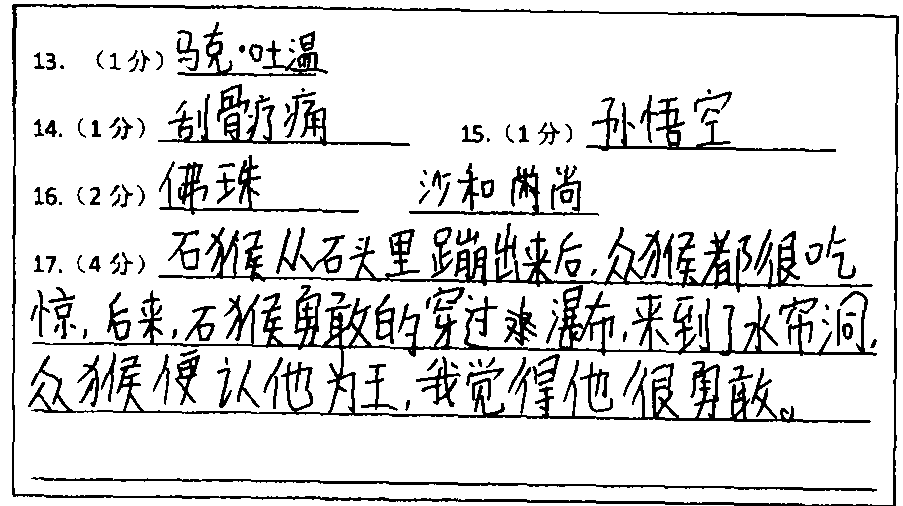 13. （1分）马克·吐温
14.（1分）刮骨疗痛 15.（1分）孙悟空
16.（2分）佛珠 沙和尚
17.（4分）石猴从石头里蹦出来后,众猴都很吃
惊,后来,石猴勇敢的穿过瀑布,来到了水帘洞,
众猴便认他为王,我觉得他很勇敢。